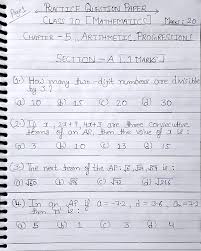 PRACTICE QUESTION PAPER
CLASS 10 [MATHEMATICS]
Marks: 20
CHAPTER - 5, ARITHMETIC PROGRESSIONS
SECTION - A [1 MARKS]
(1:) How many two-digit numbers are divisible
by 3?
(a) 10 (b) 15 (c) 20 (d) 30
(2:) If x, 2x+9, 4x+3 are three consecutive
terms of an AP, then the value of x is:
(a) 3 (c) (d)
(3:) The next term of the AP:
(a) (b) (c) (d)
(4:) In an AP if a = -7.2, d = 3.6, an = 7.2
then n is:
(a) 1 (b) 3 (c) 4 (d) 5